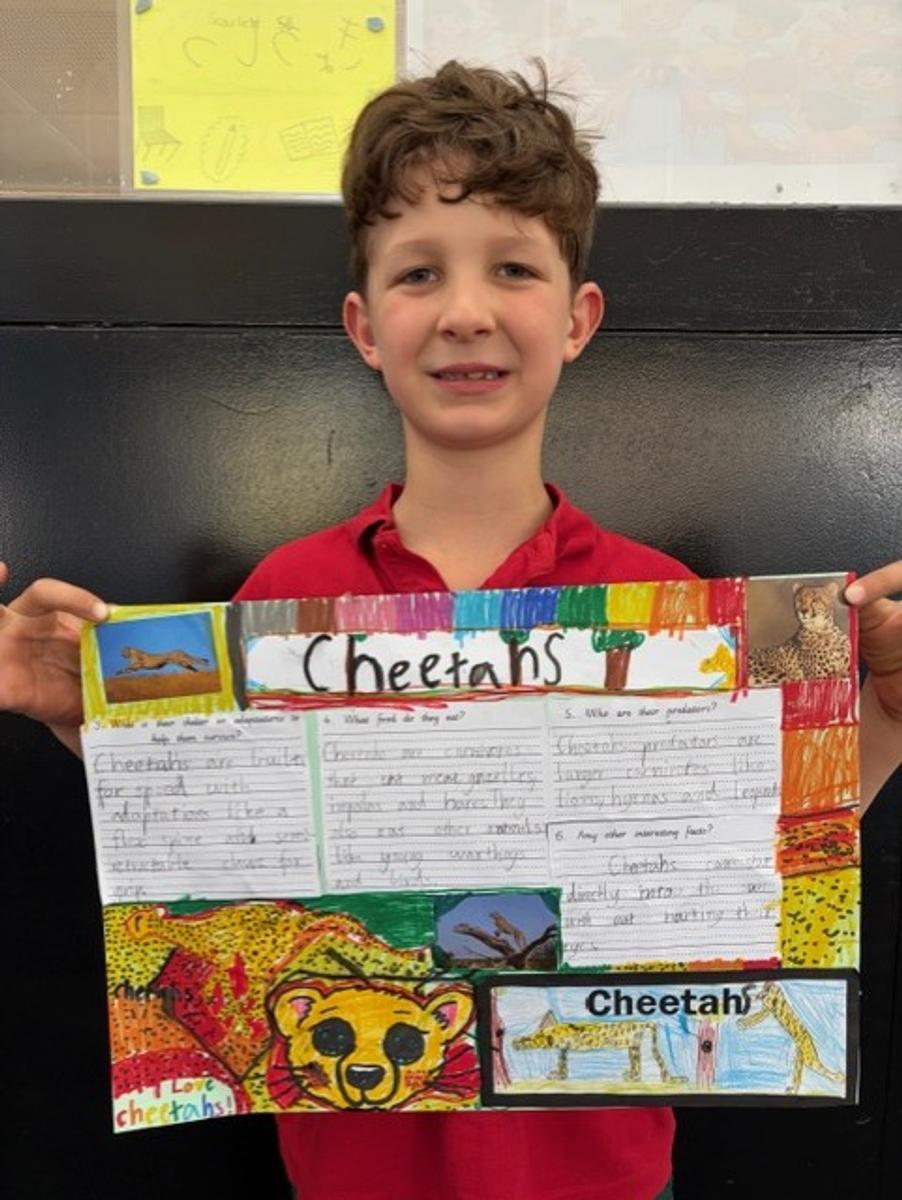 Cheetahs
3. What is their shelter or adaptations to
help them survive?
Cheetahs are built
for speed with
adaptations like a
and semi
retractable claws for
grip.
4. What food do they eat?
Cheetahs are carnivores
that eat meat gazelles,
impalas and hares. They
also eat other animals
like young warthogs
and birds.
5. Who are their predators?
Cheetahs predators are
larger carnivores like
lions, hyenas and
6. Any other interesting facts?
Cheetahs can
directly into the
with out hurting their
eyes.
I Love
cheetahs!
Cheetahs